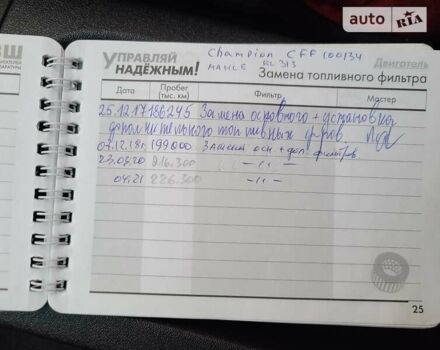 auto RIA
УПРАВЛЯЙ НАДЁЖНЫМ!
Champion CFF100134
KL 313
Двигатель
Замена топливного фильтра
Дата
Пробег (тыс. км)
Фильтр
Мастер
25.12.17 186245 Замена основного + установка
дополнительного топливных
04.12.18г. 199000 Замена осн + доп фильтров
23.03.20 216.300 — ,, —
04.21 226.300 — ,, —
25